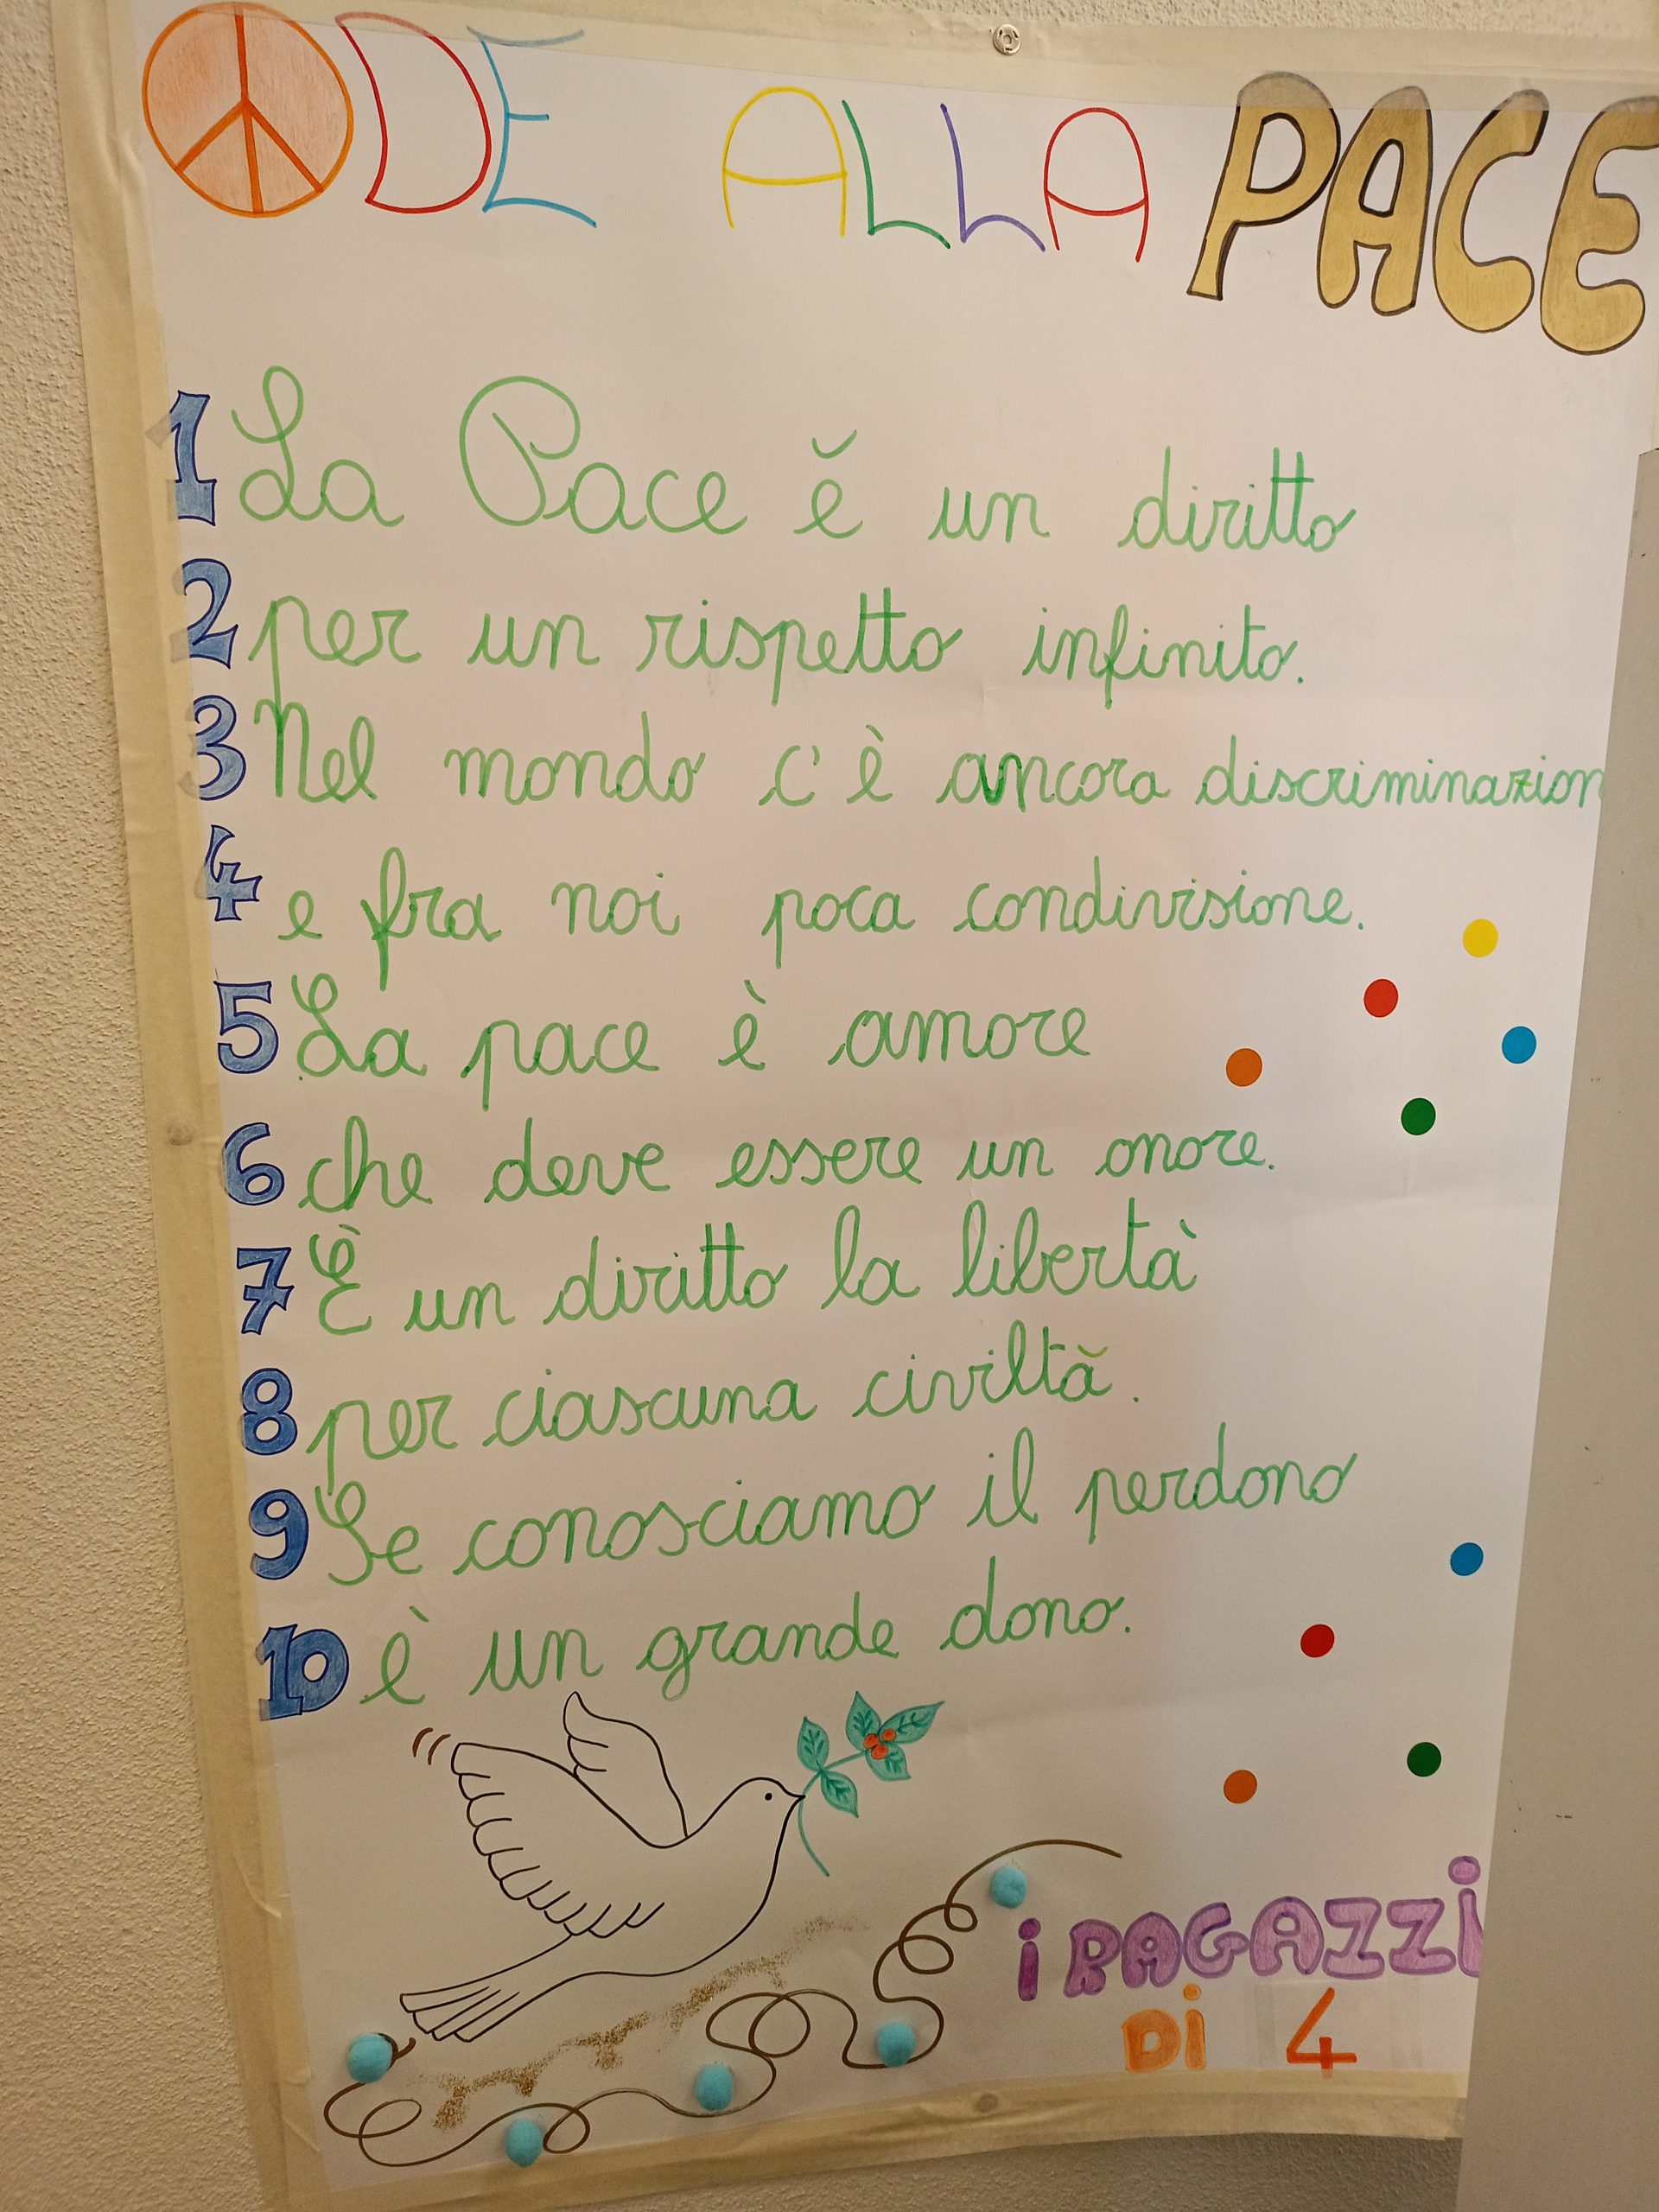 ODE ALLA PACE
1 La Pace è un diritto
2 per un rispetto infinito.
3 Nel mondo c'è ancora discriminazion
4 e fra noi poca condivisione.
5 La pace è amore
6 che deve essere un onore.
7 È un diritto la libertà
8 per ciascuna civiltà.
9 Se conosciamo il perdono
10 è un grande dono.
i RAGAZZi
Di 4